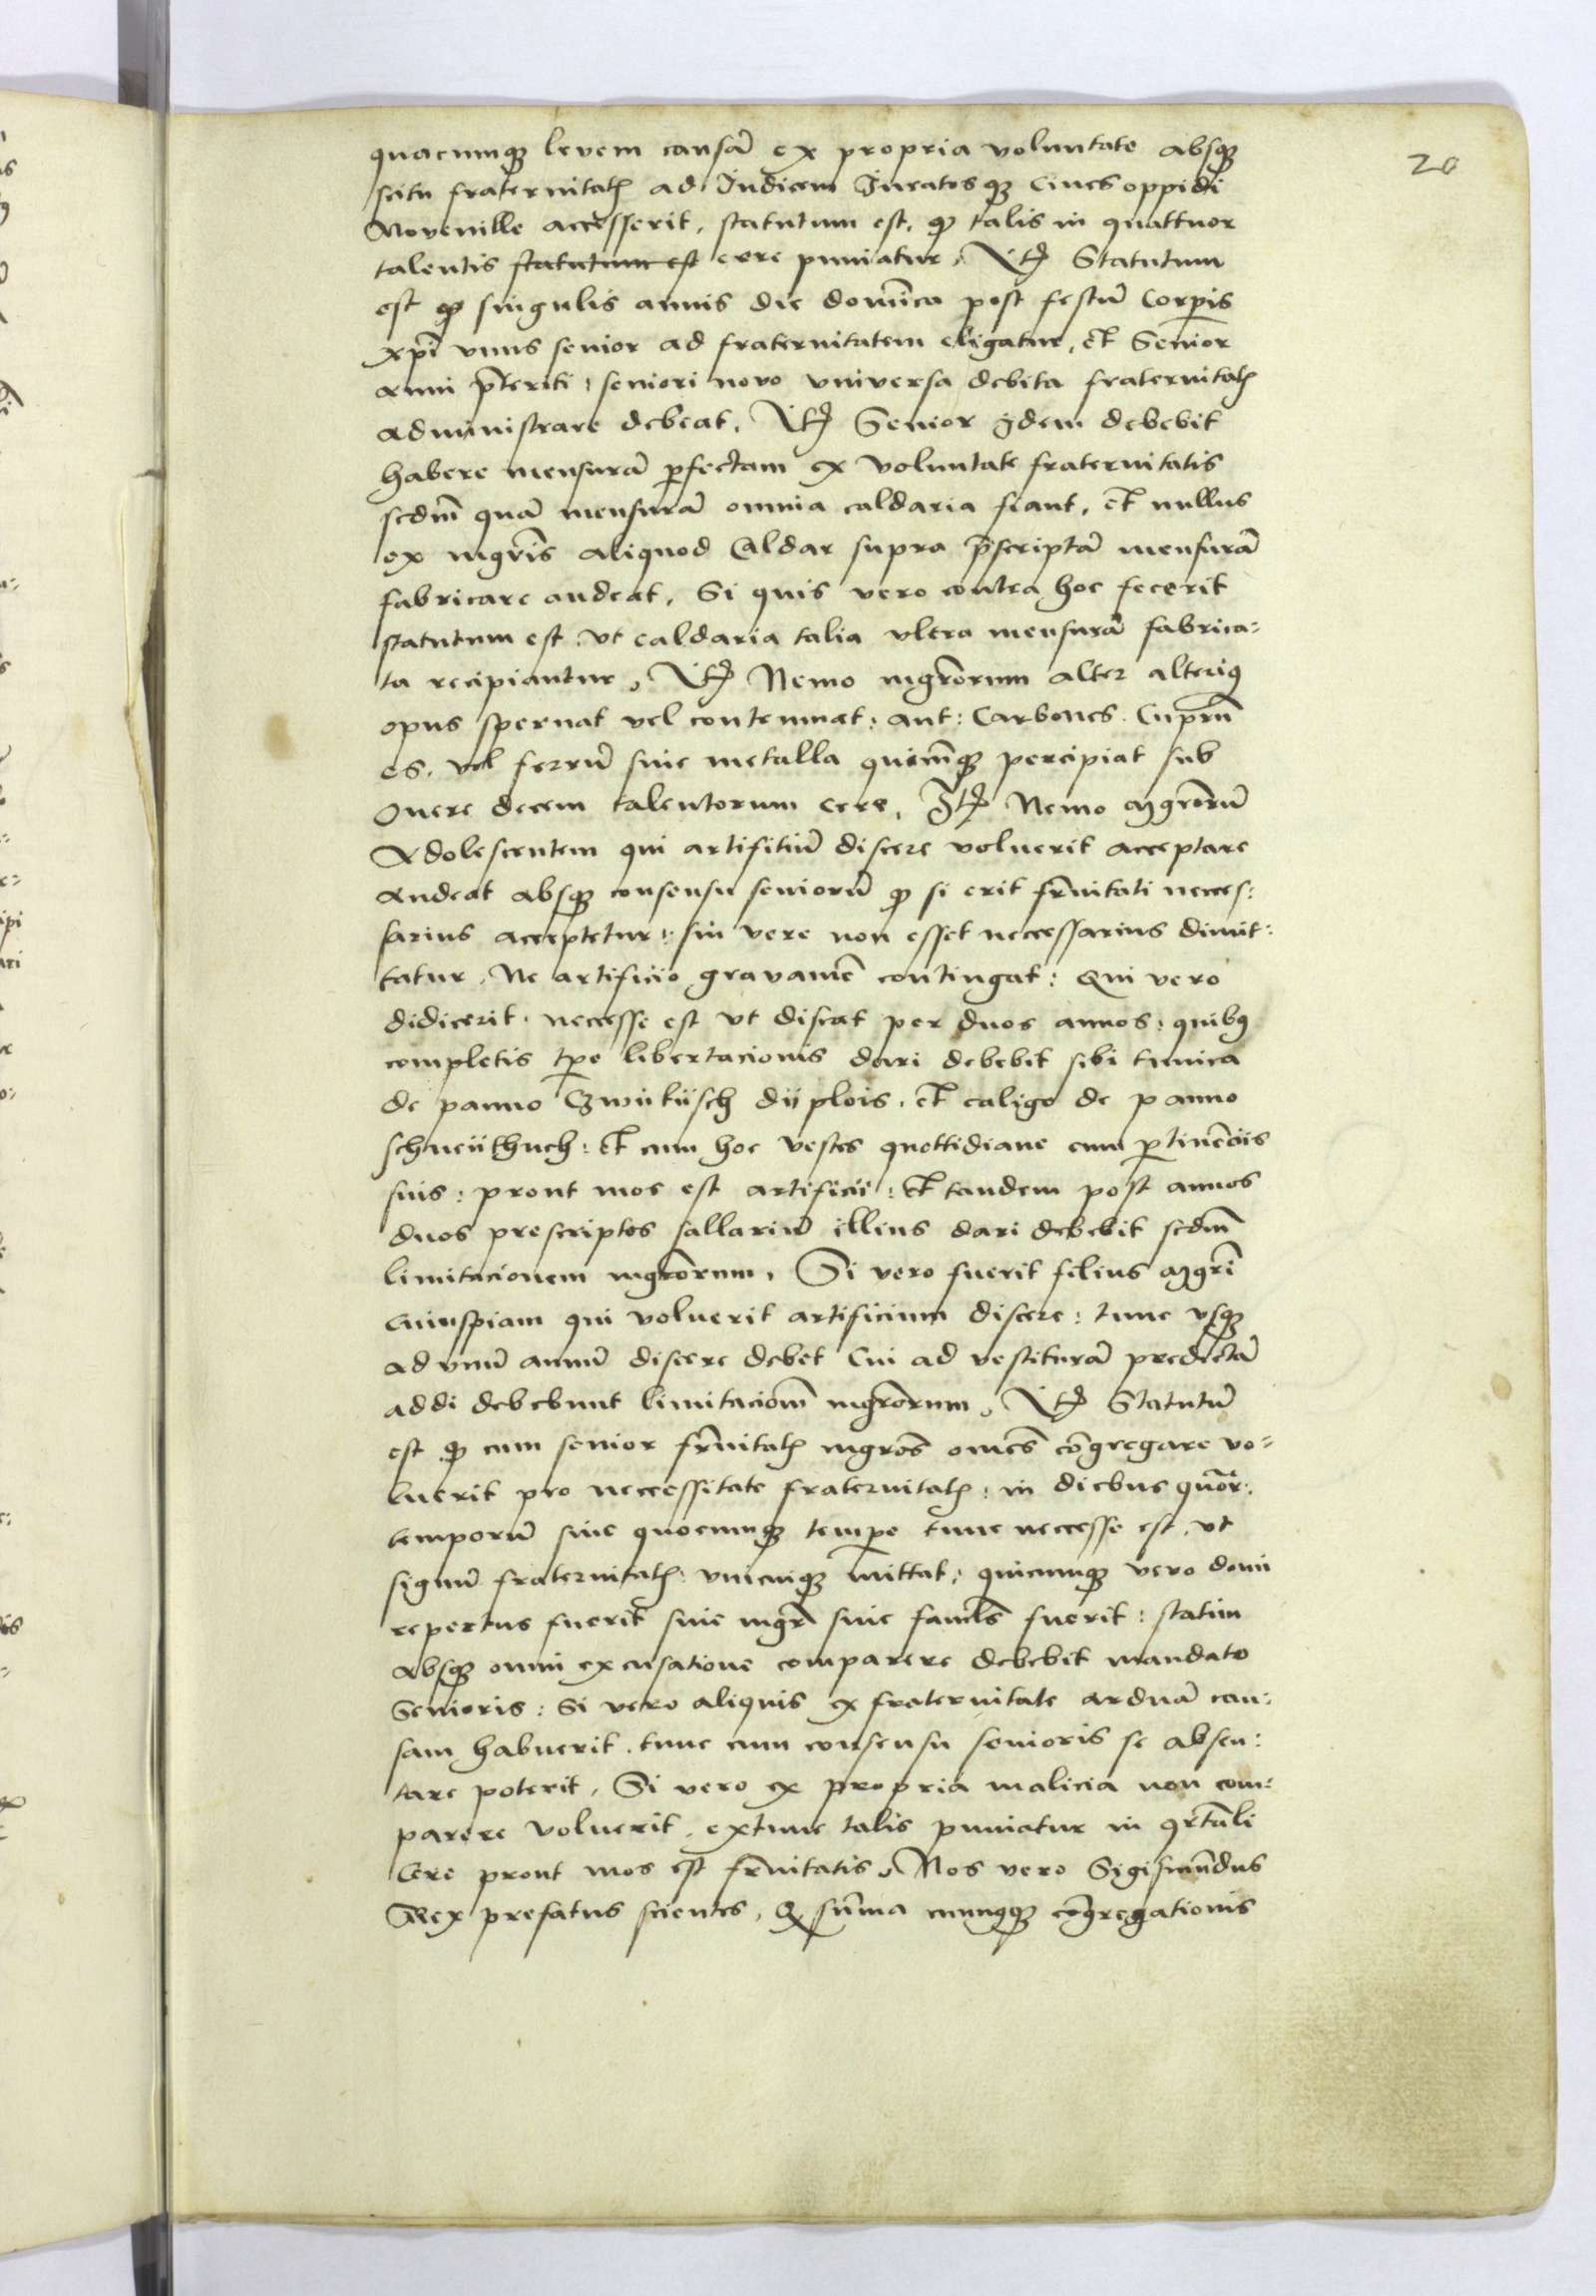 20
quacumqȝ levem causã ex propria voluntate absqȝ
scitu fraternitatꝭ ad Judicem Juratosqȝ Cives oppidi
Noveville accesserit, statutum est, qꝫ talis in quattuor
talentis statutum est cere puniatur, Itꝫ Statutum
est qꝫ singulis annis die domĩca post festũ Corpis
xpĩ vnus senior ad fraternitatem eligatur, et Senior
anni p̃teriti: seniori novo vniversa debita fraternitatꝭ
administrare debeat, Itꝫ Senior q̃dem debebit
habere mensurã pfectam ex voluntate fraternitatis
scdm̃ quã mensurã omnia caldaria fiant, et nullus
ex mgrĩs aliquod Caldar supra p̃scriptã mensurã
fabricare audeat, Si quis vero contra hoc fecerit
statutum est vt caldaria talia vltra mensurã fabrica=
ta recipiantur, Itꝫ Nemo mgrõrum alter alteriꝰ
opus spernat vel contemnat: aut: Carbones. Cuprũ
es, vel ferrũ sive metalla quecũqȝ percipiat sub
Onere decem talentorum cere, Itꝫ Nemo mgrõrũ
Adolescentem qui artifitiũ discere voluerit acceptare
audeat absqȝ consensu seniorũ qꝫ si erit fr̃nitati neces:
sarius acceptetur: sin vere non esset necessarius dimit:
tatur, Ne artificio gravamẽ contingat: Qui vero
didicerit, necesse est vt discat per duos annos: quibꝰ
completis tpe libertacionis dari debebit sibi tunica
de panno Czwitüsch diiplois, et caligo de panno
schneiithuch: et cum hoc vestes quottidiane cum ptinẽciis
suis: prout mos est artificii: et tandem post annos
duos prescriptos sallariũ illius dari debebit scdm̃
limitacionem mgrõrum, Si vero fuerit filius mgrĩ
cuiuspiam qui voluerit artificium discere: tunc vsqȝ
ad vnũ annũ discere debet Cui ad vestiturã predictã
addi debebunt limitaciom̃ mgrõrum, Itꝫ Statutũ
est qꝫ cum senior fr̃nitatꝭ mgros omẽs cõgregare vo=
luerit pro necessitate fraternitatꝭ: in diebus quõr:
temporũ sive quocumqȝ tempe tunc necesse est, vt
signũ fraternitatꝭ vnicuiqȝ mittat: quicumqȝ vero domi
repertus fuerit sive mgr̃ sive famls̃ fuerit: statim
absqȝ omni excusatione comparere debebit mandato
Senioris: Si vero aliquis ex fraternitate arduã cau:
sam habuerit, tunc cum consensu senioris se absen:
tare poterit, Si vero ex propria malicia non com:
parere voluerit, extunc talis puniatur in qrtãli
Cere prout mos est fr̃nitatis, Nos vero Sigismũdus
Rex prefatus scientes, Q sũma cuiusqȝ cõgregationis